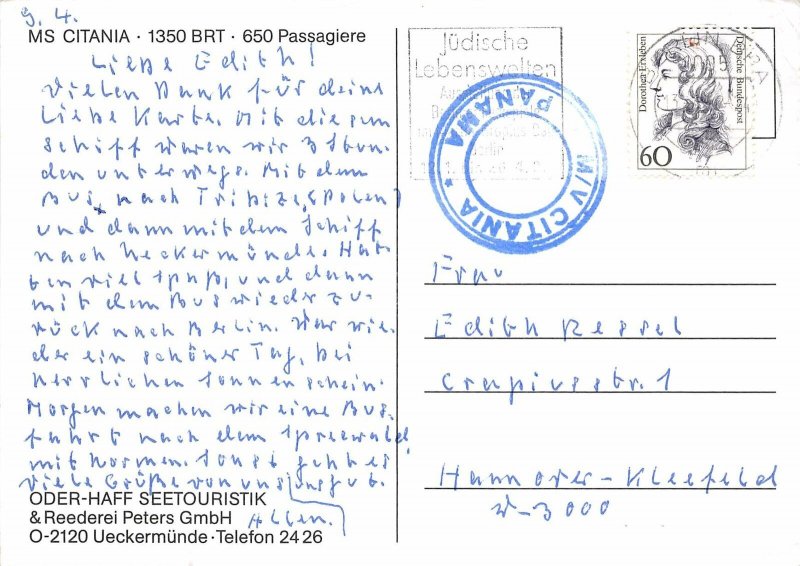 9. 4.
MS CITANIA · 1350 BRT · 650 Passagiere
Liebe Edith!
Vielen Dank für deine
Liebe Karte. Mit diesem
Schiff waren wir 3 Stun
den unterwegs. Mit dem
Bus nach (Polen)
und dann mit dem Schiff
nach Ueckermünde. Hat
ten viel Spaß, und dann
mit dem Bus wieder zu-
rück nach Berlin. War wie-
der ein schöner Tag, bei
herrlichen Sonnenschein.
Morgen machen wir eine Bus-
fahrt nach dem Spreewald
mit Hormen. Sonst geht es
uns gut.
Viele Grüße von uns
Allen.
ODER-HAFF SEETOURISTIK
& Reederei Peters GmbH
O-2120 Ueckermünde · Telefon 24 26
Jüdische
Lebenswelten
M/V CITANIA * PANAMA
Dorothea Erxleben
Deutsche Bundespost
60
Frau
Edith Ressel
Crapiusstr. 1
Hannover-Kleefeld
W-3000